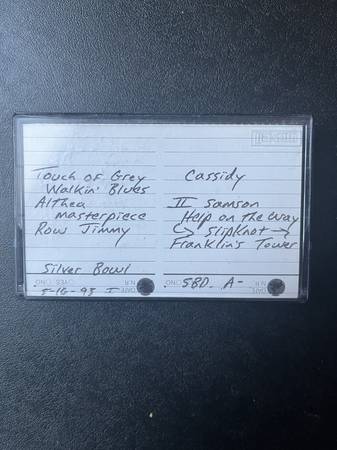 Touch of Grey
Walkin' Blues
Althea
masterpiece
Row Jimmy
Silver Bowl
5-16-93 I
Cassidy
II Samson
Help on the Way
↳ Slipknot →
Franklin's Tower
SBD A-
maxell
DATE
N.R. YES NO
DATE
N.R. YES NO